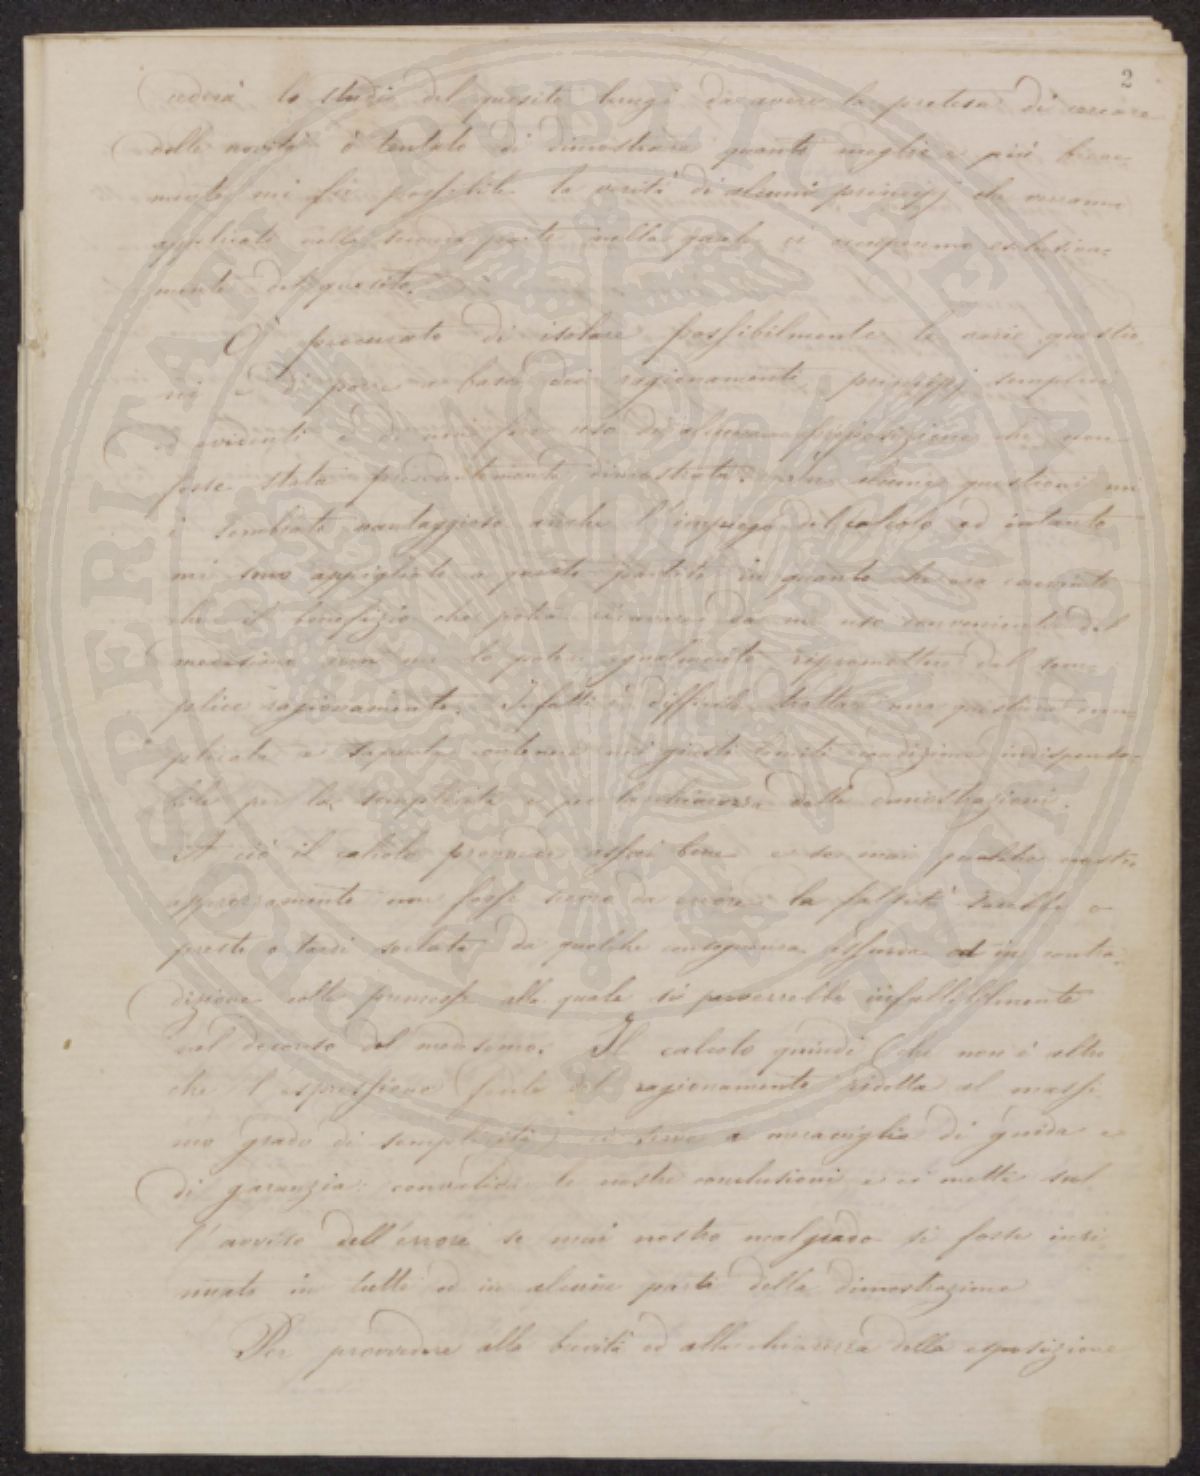 2
cederà lo studio del quesito lungi da avere la pretesa di cercare
delle novità ò tentato di dimostrare quanto meglio e più breve-
mente mi fu possibile la verità di alcuni principj che verranno
applicati nella seconda parte nella quale ci occuperemo esclusiva-
mente del quesito.
O' procurato di isolare possibilmente le varie questio
ni e di porre a base dei ragionamenti principj semplici
ed evidenti e di non fare uso di alcuna proposizione che non
fosse stata precedentemente dimostrata: per alcune questioni mi
è sembrato vantaggioso anche l'impiego del calcolo ed intanto
mi sono appigliato a questo partito in quanto che era convinto
che il benefizio che potea ricavarsi da un uso conveniente del
medesimo non me lo potea egualmente ripromettere dal sem-
plice ragionamento. Infatti è difficile trattar una questione com
plicata e saperla contenere nei giusti limiti condizione indispensa-
bile per la semplicità e per la chiarezza delle dimostrazioni.
A ciò il calcolo provvede assai bene e se mai qualche nostro
apprezzamento non fosse scevro da errore la falsità sarebbe o
presto o tardi svelata da qualche conseguenza assurda od in contra-
dizione colle premesse alla quale si perverrebbe infallibilmente
nel decorso del medesimo. Il calcolo quindi (che non è altro
che l'espressione fedele del ragionamento ridotta al massi
mo grado di semplicità) ci serve a meraviglia di guida e
di garanzia: convalida le nostre conclusioni e ci mette sul
l'avviso dell'errore se mai nostro malgrado si fosse insi
nuato in tutte od in alcune parti della dimostrazione
Per provvedere alla brevità ed alla chiarezza della esposizione
SOSPERITATI PUBLICAE AUGENDAE